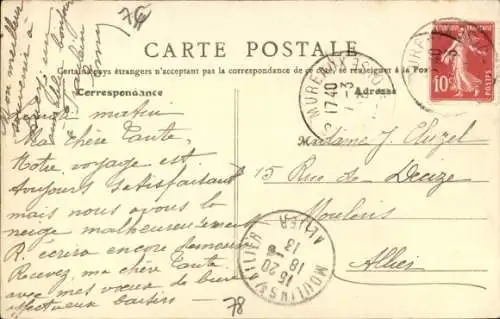 74
CARTE POSTALE
Certains pays étrangers n'acceptant pas la correspondance de ce côté, se renseigner à la Poste
Correspondance
Adresse
matin
Ma chère Tante,
Notre voyage est
toujours satisfaisant
mais nous avons la
neige malheureusement
R. écrira encore demain
Recevez, ma chère Tante
avec mes vœux de
affectueux baisers
78
mon meilleur
souvenir à
Madame J. Cluzel
15 Rue de Decize
Moulins
Allier
MUREAUX
17 40
1 -3
MOULINS S/ ALLIER
ALLIER
15 20
18 -6
13
10c